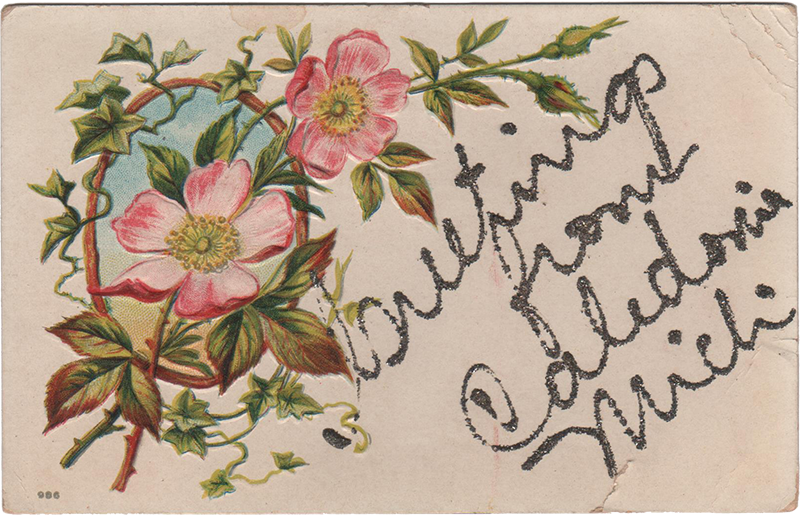 Greeting
from
Caledonia
Mich
986